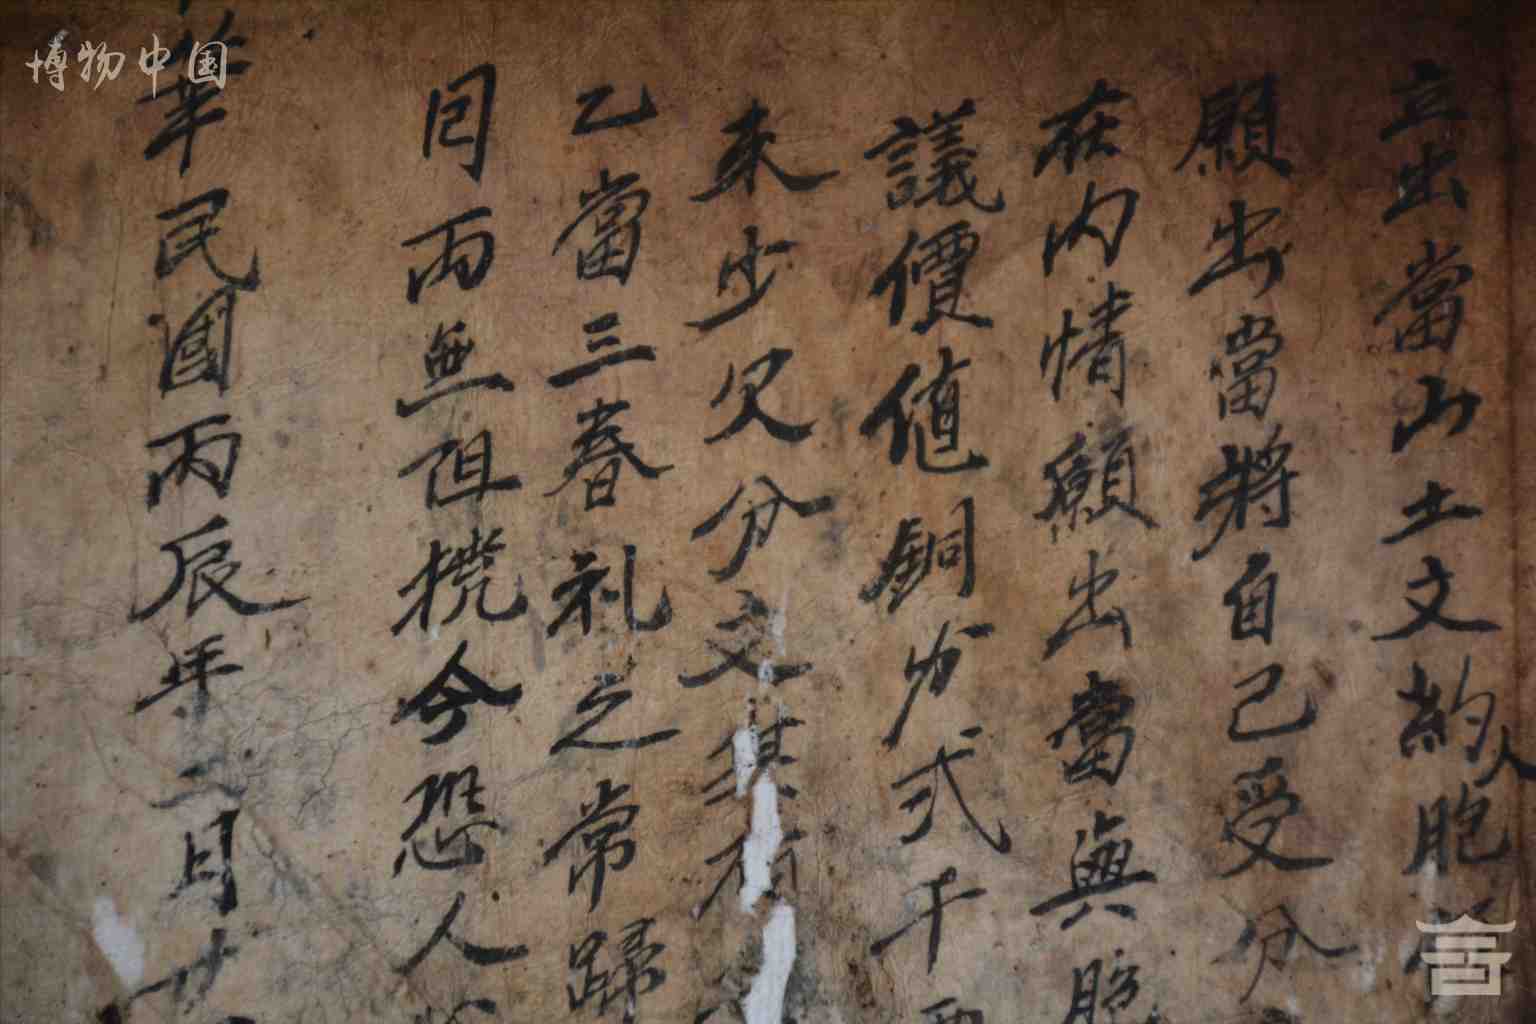 博物中国
立出當山土文約人胞
願出當將自己受分
在内情願出當與胞
議價值銅力弍千
来少欠分文其
乙當三春礼之常歸
囘両無阻撓今恐人
華民國丙辰年二月廿